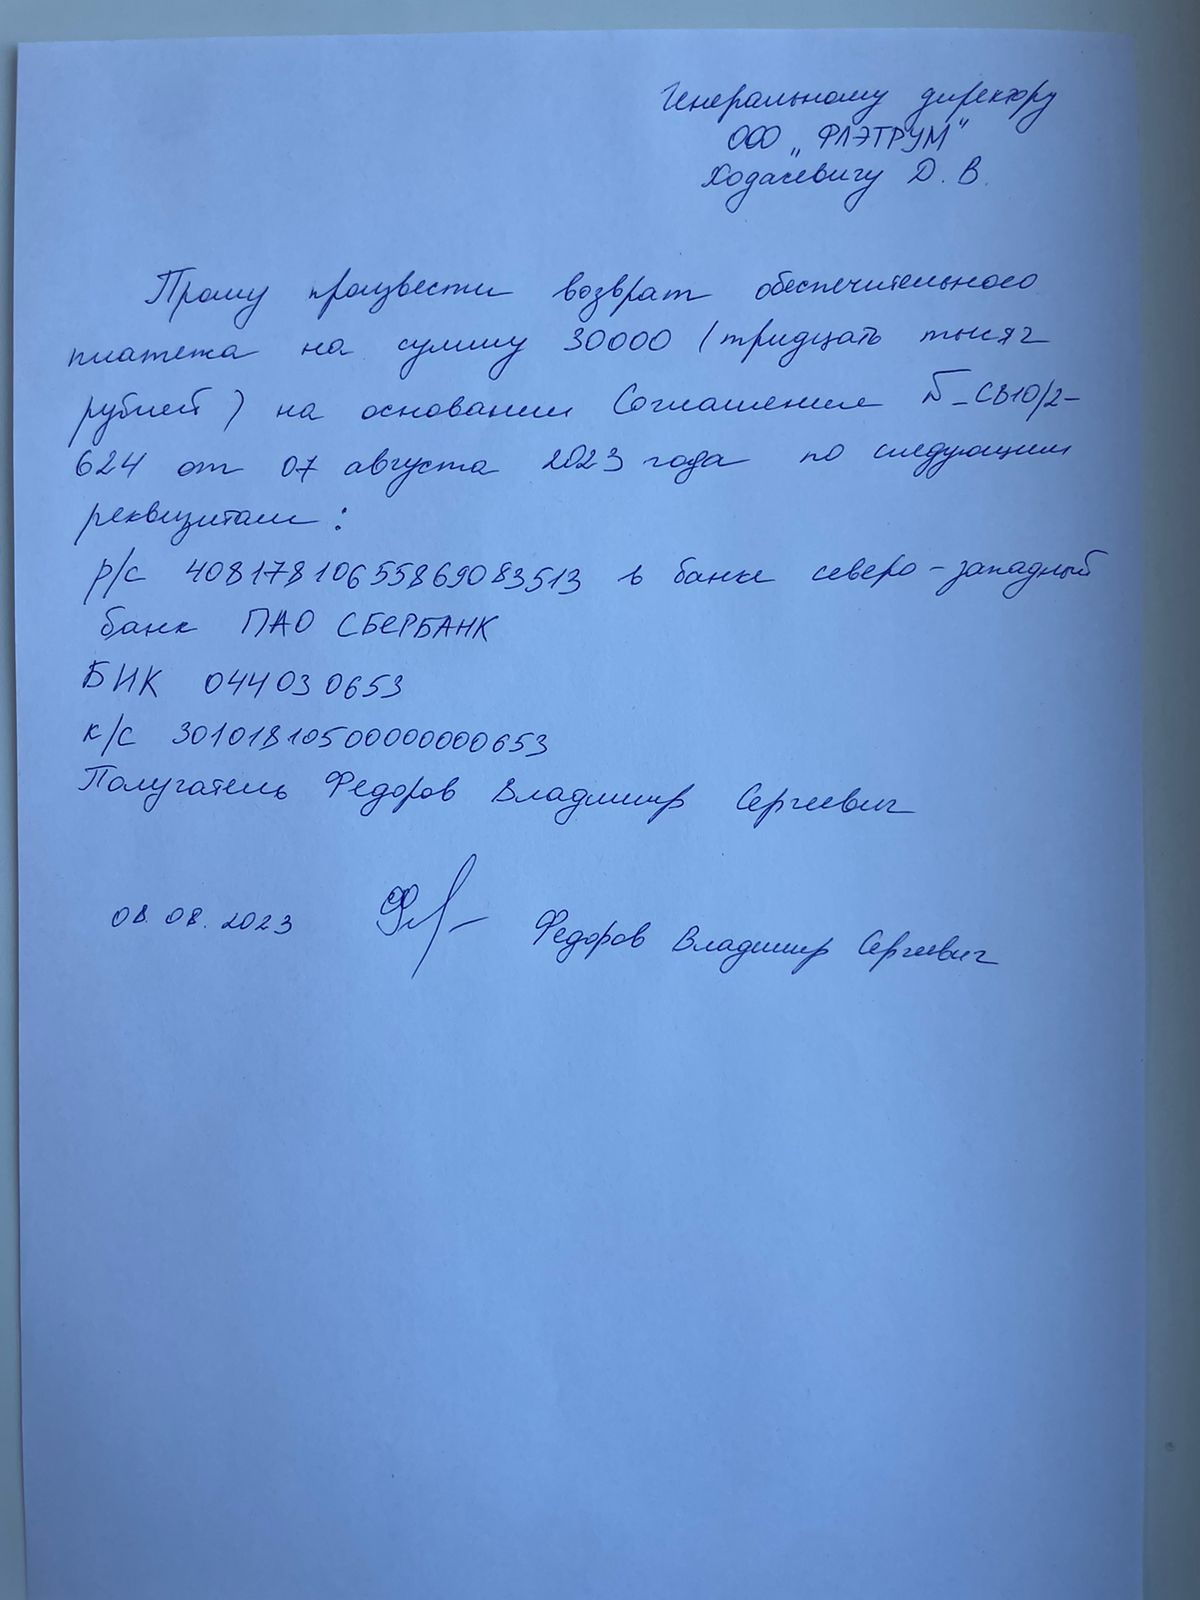 Генеральному директору
ООО „ФЛЭТРУМ"
Ходасевичу Д. В.
Прошу произвести возврат обеспечительного
платежа на сумму 30000 (тридцать тысяч
рублей) на основании Соглашения Б-СВ10/2-
624 от 07 августа 2023 года по следующим
реквизитам:
р/с 40817810655869083513 в банке северо-западный
банк ПАО СБЕРБАНК
БИК 044030653
к/с 30101810500000000653
Получатель Федоров Владимир Сергеевич
08.08.2023 Федоров Владимир Сергеевич